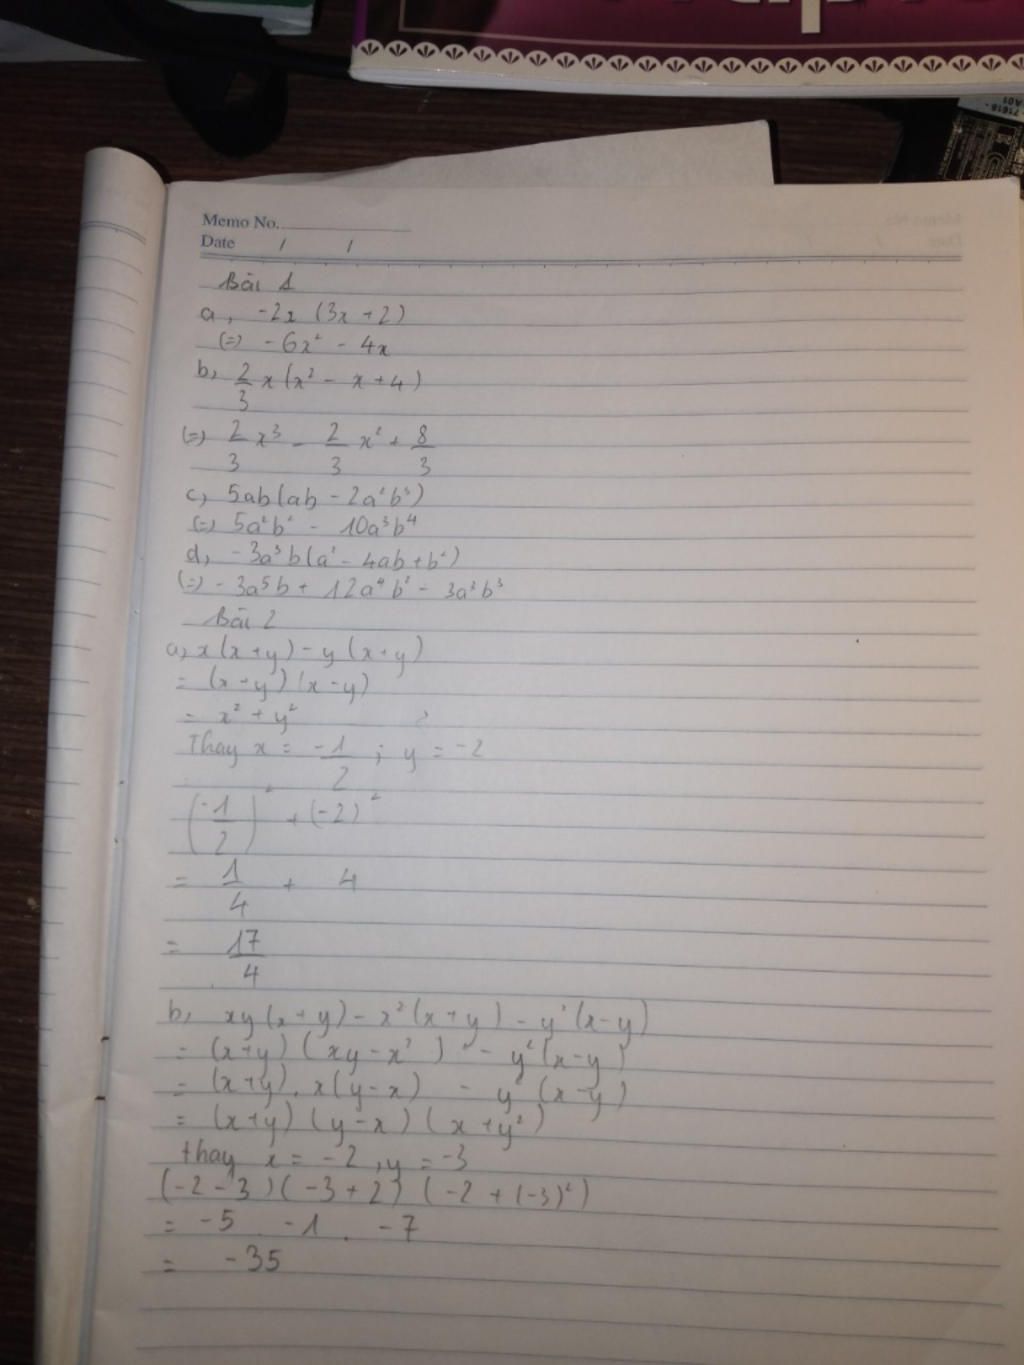 Memo No.
Date / /
Bài 1
a, -2x (3x + 2)
(=) - 6x² - 4x
b, 2/3 x (x² - x + 4)
(=) 2/3 x³ - 2/3 x² + 8/3
c, 5ab(ab - 2a²b³)
(=) 5a²b² - 10a³b⁴
d, - 3a³b(a² - 4ab + b²)
(=) - 3a⁵b + 12a⁴b² - 3a³b³
Bài 2
a, x(x + y) - y(x + y)
= (x + y)(x - y)
= x² + y²
Thay x = -1/2 ; y = -2
(-1/2)² + (-2)²
= 1/4 + 4
= 17/4
b, xy(x + y) - x²(x + y) - y²(x - y)
= (x+y) (xy - x²) - y²(x - y)
= (x + y) . x(y - x) - y² (x - y)
= (x+y) (y - x) (x + y²)
thay x = -2, y = -3
(-2 - 3)(-3 + 2) (-2 + (-3)²)
= -5 . -1 . -7
= -35